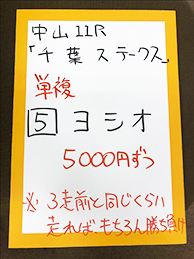 中山11R
「千葉ステークス」
単複
5 ヨシオ
5000円ずつ
※3走前と同じくらい
走ればもちろん勝ち負け